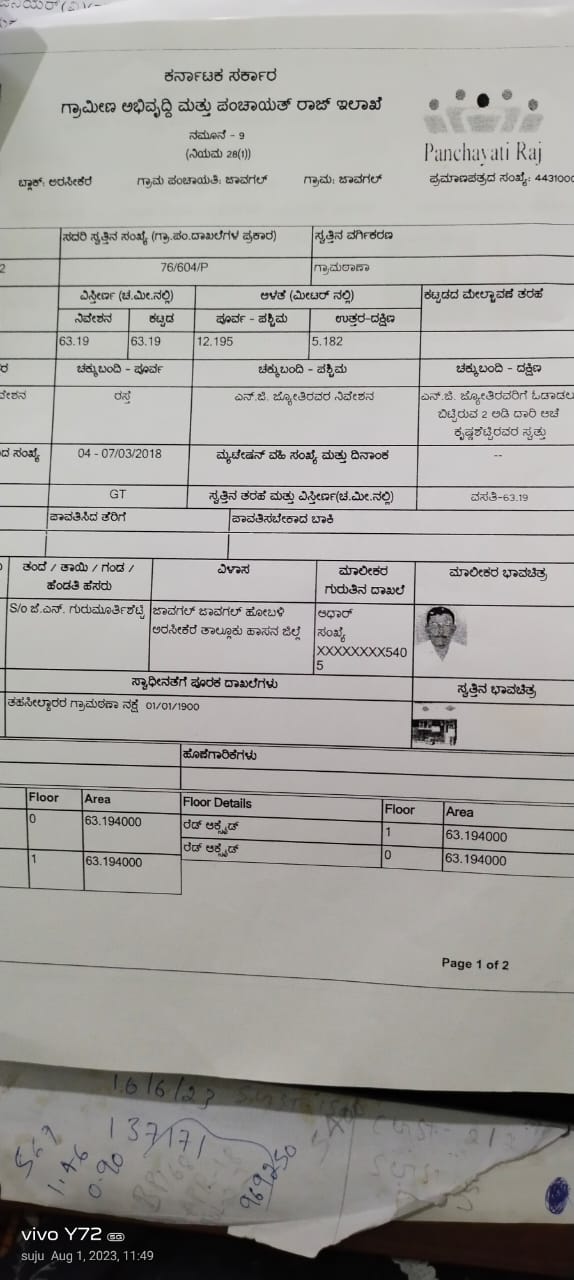 ಕರ್ನಾಟಕ ಸರ್ಕಾರ
ಗ್ರಾಮೀಣ ಅಭಿವೃದ್ಧಿ ಮತ್ತು ಪಂಚಾಯತ್ ರಾಜ್ ಇಲಾಖೆ
ನಮೂನೆ - 9
(ನಿಯಮ 28(1))
Panchayati Raj
ಬ್ಲಾಕ್: ಅರಸೀಕೆರೆ ಗ್ರಾಮ ಪಂಚಾಯತಿ: ಜಾವಗಲ್ ಗ್ರಾಮ: ಜಾವಗಲ್ ಪ್ರಮಾಣಪತ್ರದ ಸಂಖ್ಯೆ: 443100
ಸದರಿ ಸ್ವತ್ತಿನ ಸಂಖ್ಯೆ (ಗ್ರಾ.ಪಂ.ದಾಖಲೆಗಳ ಪ್ರಕಾರ) ಸ್ವತ್ತಿನ ವರ್ಗಿಕರಣ
2 76/604/P ಗ್ರಾಮಠಾಣಾ
ವಿಸ್ತೀರ್ಣ (ಚ.ಮೀ.ನಲ್ಲಿ) ಅಳತೆ (ಮೀಟರ್ ನಲ್ಲಿ) ಕಟ್ಟಡದ ಮೇಲ್ಚಾವಣೆ ತರಹೆ
ನಿವೇಶನ ಕಟ್ಟಡ ಪೂರ್ವ - ಪಶ್ಚಿಮ ಉತ್ತರ-ದಕ್ಷಿಣ
63.19 63.19 12.195 5.182
ರ ಚಕ್ಕುಬಂದಿ - ಪೂರ್ವ ಚಕ್ಕುಬಂದಿ - ಪಶ್ಚಿಮ ಚಕ್ಕುಬಂದಿ - ದಕ್ಷಿಣ
ವೇಶನ ರಸ್ತೆ ಎನ್.ಜಿ. ಜ್ಯೋತಿರವರ ನಿವೇಶನ ಎನ್.ಜಿ. ಜ್ಯೋತಿರವರಿಗೆ ಓಡಾಡಲ
ಬಿಟ್ಟಿರುವ 2 ಅಡಿ ದಾರಿ ಆಚೆ
ಕೃಷ್ಣಶೆಟ್ಟಿರವರ ಸ್ವತ್ತು
ದ ಸಂಖ್ಯೆ 04 - 07/03/2018 ಮ್ಯುಟೇಷನ್ ವಹಿ ಸಂಖ್ಯೆ ಮತ್ತು ದಿನಾಂಕ --
GT ಸ್ವತ್ತಿನ ತರಹೆ ಮತ್ತು ವಿಸ್ತೀರ್ಣ(ಚ.ಮೀ.ನಲ್ಲಿ) ವಸತಿ-63.19
ಪಾವತಿಸಿದ ತೆರಿಗೆ ಪಾವತಿಸಬೇಕಾದ ಬಾಕಿ
ತಂದೆ / ತಾಯಿ / ಗಂಡ / ವಿಳಾಸ ಮಾಲೀಕರ ಮಾಲೀಕರ ಭಾವಚಿತ್ರ
ಹೆಂಡತಿ ಹೆಸರು ಗುರುತಿನ ದಾಖಲೆ
S/o ಜೆ.ಎನ್. ಗುರುಮೂರ್ತಿಶೆಟ್ಟಿ ಜಾವಗಲ್ ಜಾವಗಲ್ ಹೋಬಳಿ ಆಧಾರ್
ಅರಸೀಕೆರೆ ತಾಲ್ಲೂಕು ಹಾಸನ ಜಿಲ್ಲೆ ಸಂಖ್ಯೆ
XXXXXXXX540
5
ಸ್ವಾಧೀನತೆಗೆ ಪೂರಕ ದಾಖಲೆಗಳು ಸ್ವತ್ತಿನ ಭಾವಚಿತ್ರ
ತಹಸೀಲ್ದಾರರ ಗ್ರಾಮಠಾಣಾ ನಕ್ಷೆ 01/01/1900
ಹೊಣೆಗಾರಿಕೆಗಳು
Floor Area Floor Details Floor Area
0 63.194000 ರೆಡ್ ಆಕ್ಸೈಡ್ 1 63.194000
1 63.194000 ರೆಡ್ ಆಕ್ಸೈಡ್ 0 63.194000
Page 1 of 2
16/6/23
137/171
567
1.46
0.90
969250
vivo Y72 5G
suju Aug 1, 2023, 11:49